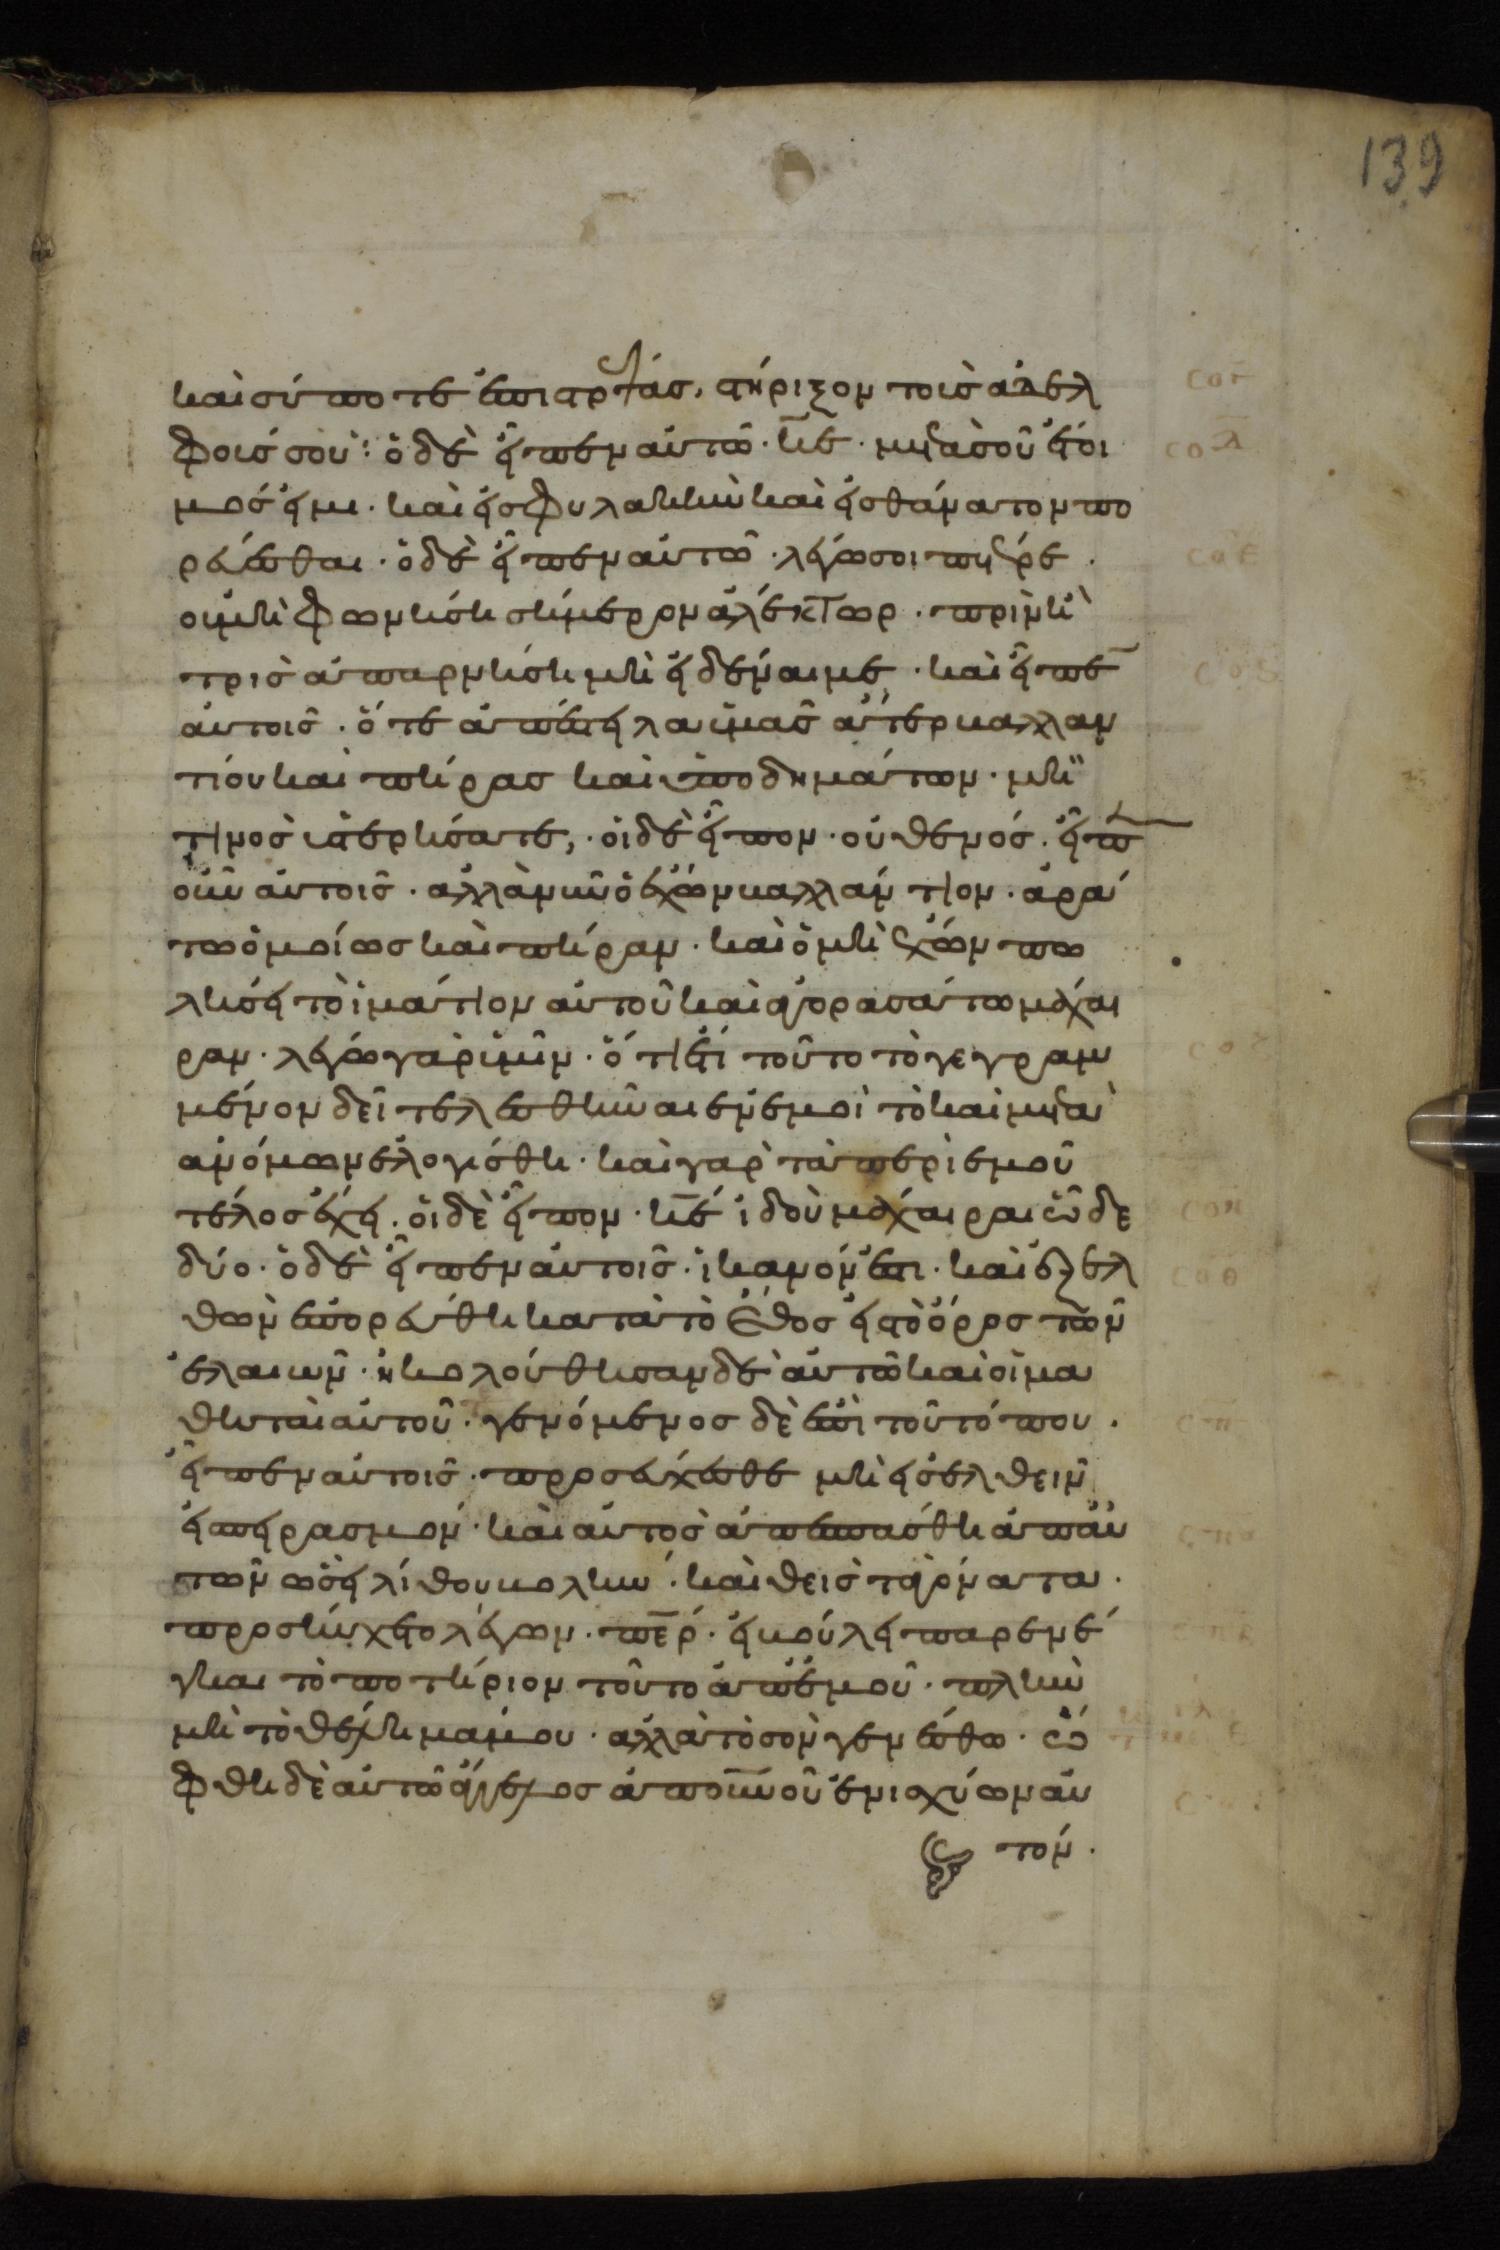 139
καὶ σύ ποτε ἐπιστρέψας, στήριξον τοὺς ἀδελ
φούς σου· ὁ δὲ εἶπεν αὐτῶ· κ̅ε̅· μετὰ σοῦ ἕτοι
μός εἰμι· καὶ εἰς φυλακὴν καὶ εἰς θάνατον πο
ρεύεσθαι· ὁ δὲ εἶπεν αὐτῶ· λέγω σοι πέτρε·
οὐ μὴ φωνήση σήμερον ἀλέκτωρ· πρὶν ἢ
τρὶς ἀπαρνήση μὴ εἰδέναι με· καὶ εἶπεν
αὐτοῖς· ὅτε ἀπέστειλα ὑμᾶς ἄτερ βαλλαν
τίου καὶ πήρας καὶ ὑποδημάτων· μή
τινος ὑστερήσατε, · οἱ δὲ εἶπον· οὐθενός· εἶπεν
οὖν αὐτοῖς· ἀλλὰ νῦν ὁ ἔχων βαλλάντιον· ἀρά
τω ὁμοίως καὶ πήραν· καὶ ὁ μὴ ἔχων πω
λήσει τὸ ἱμάτιον αὐτοῦ καὶ ἀγορασάτω μάχαι
ραν· λέγω γὰρ ὑμῖν· ὅτι ἔτι τοῦτο τὸ γεγραμ
μένον δεῖ τελεσθῆναι ἐν ἐμοὶ τὸ καὶ μετὰ
ἀνόμων ἐλογίσθη· καὶ γὰρ τὰ περὶ ἐμοῦ
τέλος ἔχει· οἱ δὲ εἶπον· κ̅ε̅ ἰδοὺ μάχαιραι ὧδε
δύο· ὁ δὲ εἶπεν αὐτοῖς· ἱκανόν ἐστι· καὶ ἐξελ
θὼν ἐπορεύθη κατὰ τὸ ἔθος εἰς τὸ ὄρος τῶν
ἐλαιῶν· ἠκολούθησαν δὲ αὐτῶ καὶ οἱ μα
θηταὶ αὐτοῦ· γενόμενος δὲ ἐπὶ τοῦ τόπου·
εἶπεν αὐτοῖς· προσεύχεσθε μὴ εἰσελθεῖν
εἰς πειρασμόν· καὶ αὐτὸς ἀπεσπάσθη ἀπ' αὐ
τῶν ὡσεὶ λίθου βολήν· καὶ θεὶς τὰ γόνατα·
προσηύχετο λέγων· π̅ε̅ρ̅· εἰ βούλει παρενέ
γκαι τὸ ποτήριον τοῦτο ἀπ' ἐμοῦ· πλὴν
μὴ τὸ θέλημά μου· ἀλλὰ τὸ σὸν γενέσθω· ὤ
φθη δὲ αὐτῶ ἄγγελος ἀπ' ο̅υ̅ν̅οῦ ἐνισχύων αὐ
τόν·